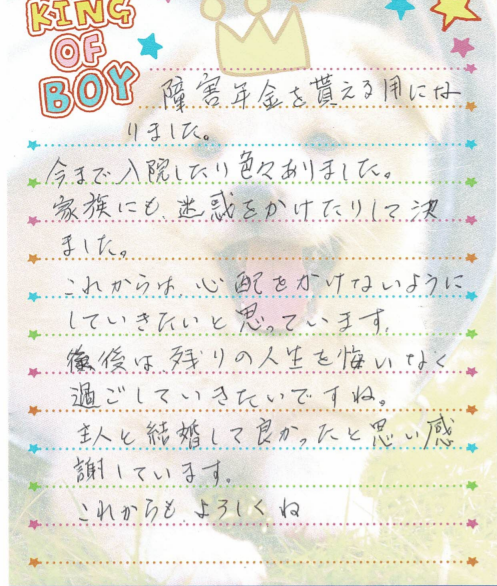 KING
OF
BOY
障害年金を貰える用にな
りました。
今まで入院したり色々ありました。
家族にも、迷惑をかけたりして決
ました。
これからは、心配をかけないように
していきたいと思っています。
後は、残りの人生を悔いなく
過ごしていきたいですね。
主人と結婚して良かったと思い感
謝しています。
これからも、よろしくね